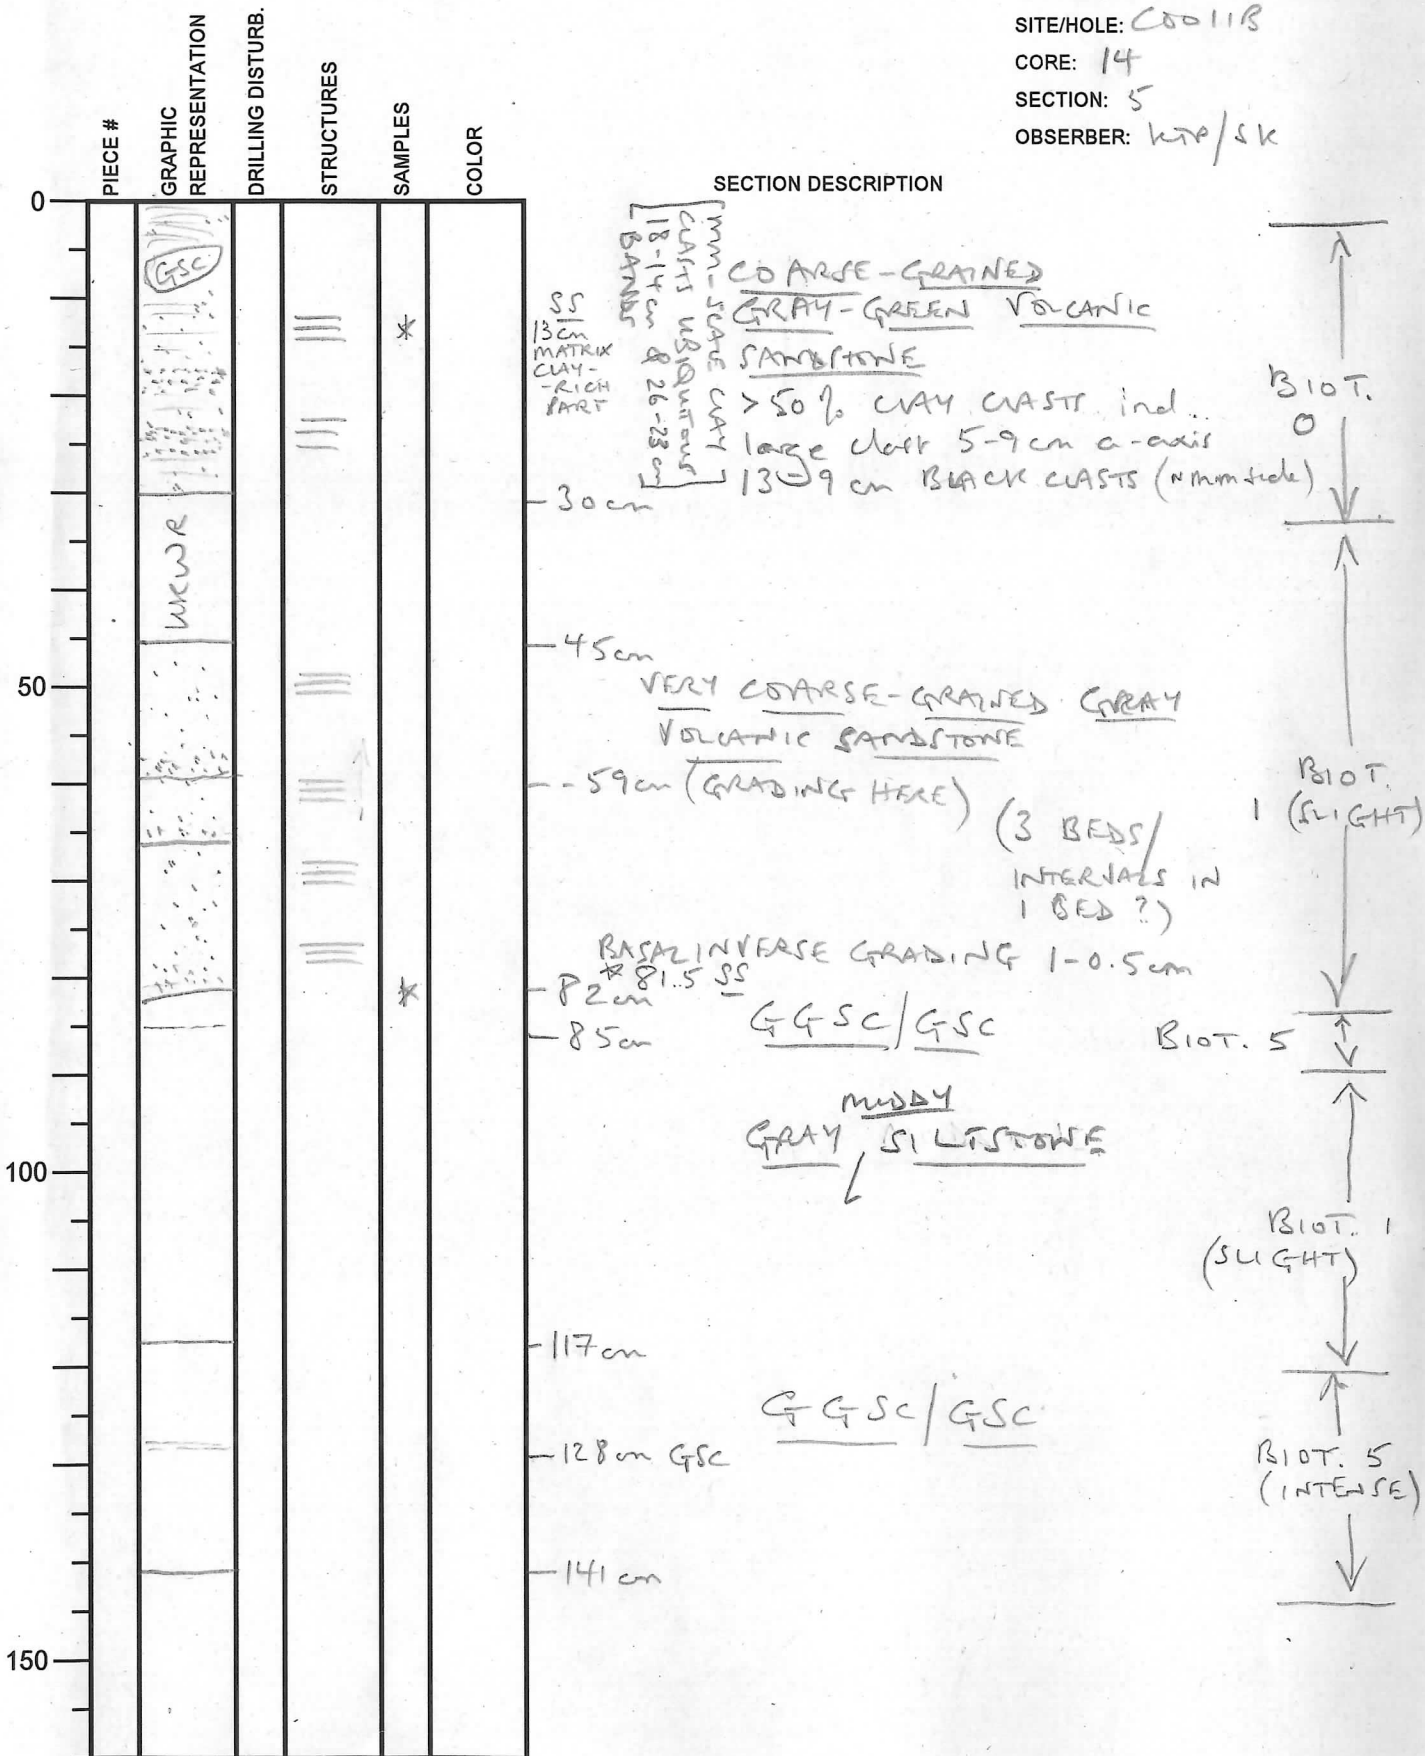 SITE/HOLE: C0011B
CORE: 14
SECTION: 5
OBSERBER: KTP/SK
PIECE #
GRAPHIC
REPRESENTATION
DRILLING DISTURB.
STRUCTURES
SAMPLES
COLOR
SECTION DESCRIPTION
0
50
100
150
GSC
WRWR
SS
13cm
MATRIX
CLAY-
-RICH
PART
mm-SCALE CLAY
CLASTS UBIQUITOUS
18-14cm & 26-23cm
BANDS
COARSE-GRAINED
GRAY-GREEN VOLCANIC
SANDSTONE
>50% CLAY CLASTS incl..
large clast 5-9cm a-axis
13-9 cm BLACK CLASTS (~mm scale)
30cm
45cm
VERY COARSE-GRAINED GRAY
VOLCANIC SANDSTONE
59cm (GRADING HERE)
(3 BEDS/
INTERVALS IN
1 BED ?)
BASAL INVERSE GRADING 1-0.5cm
* 81.5 SS
82cm
85cm
GGSC/GSC
MUDDY
GRAY SILTSTONE
117cm
GGSC/GSC
128cm GSC
141cm
BIOT.
0
BIOT.
1 (SLIGHT)
BIOT. 5
BIOT. 1
(SLIGHT)
BIOT. 5
(INTENSE)